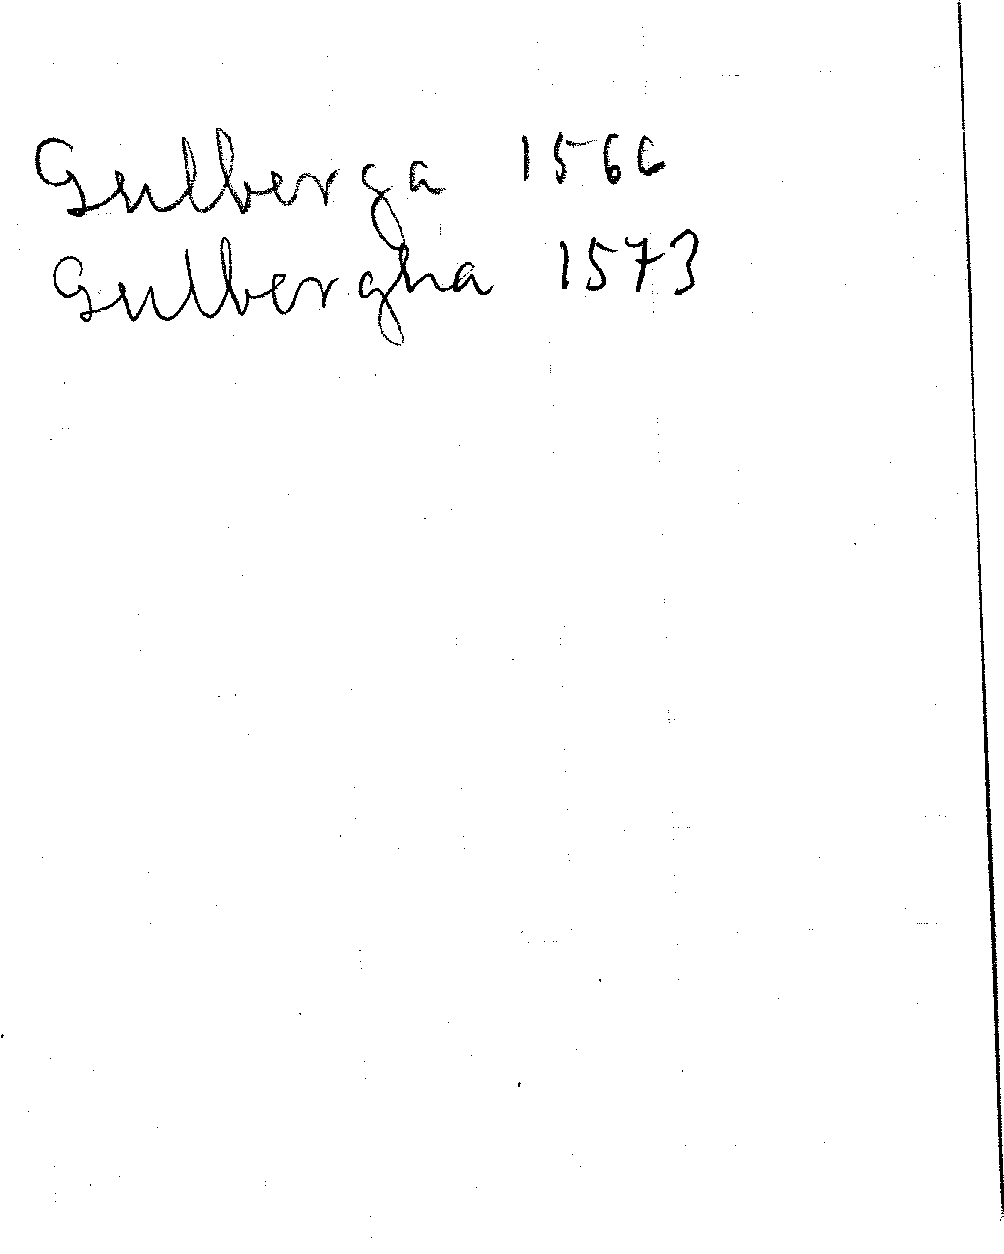 Gulberga 1566
Gulbergha 1573